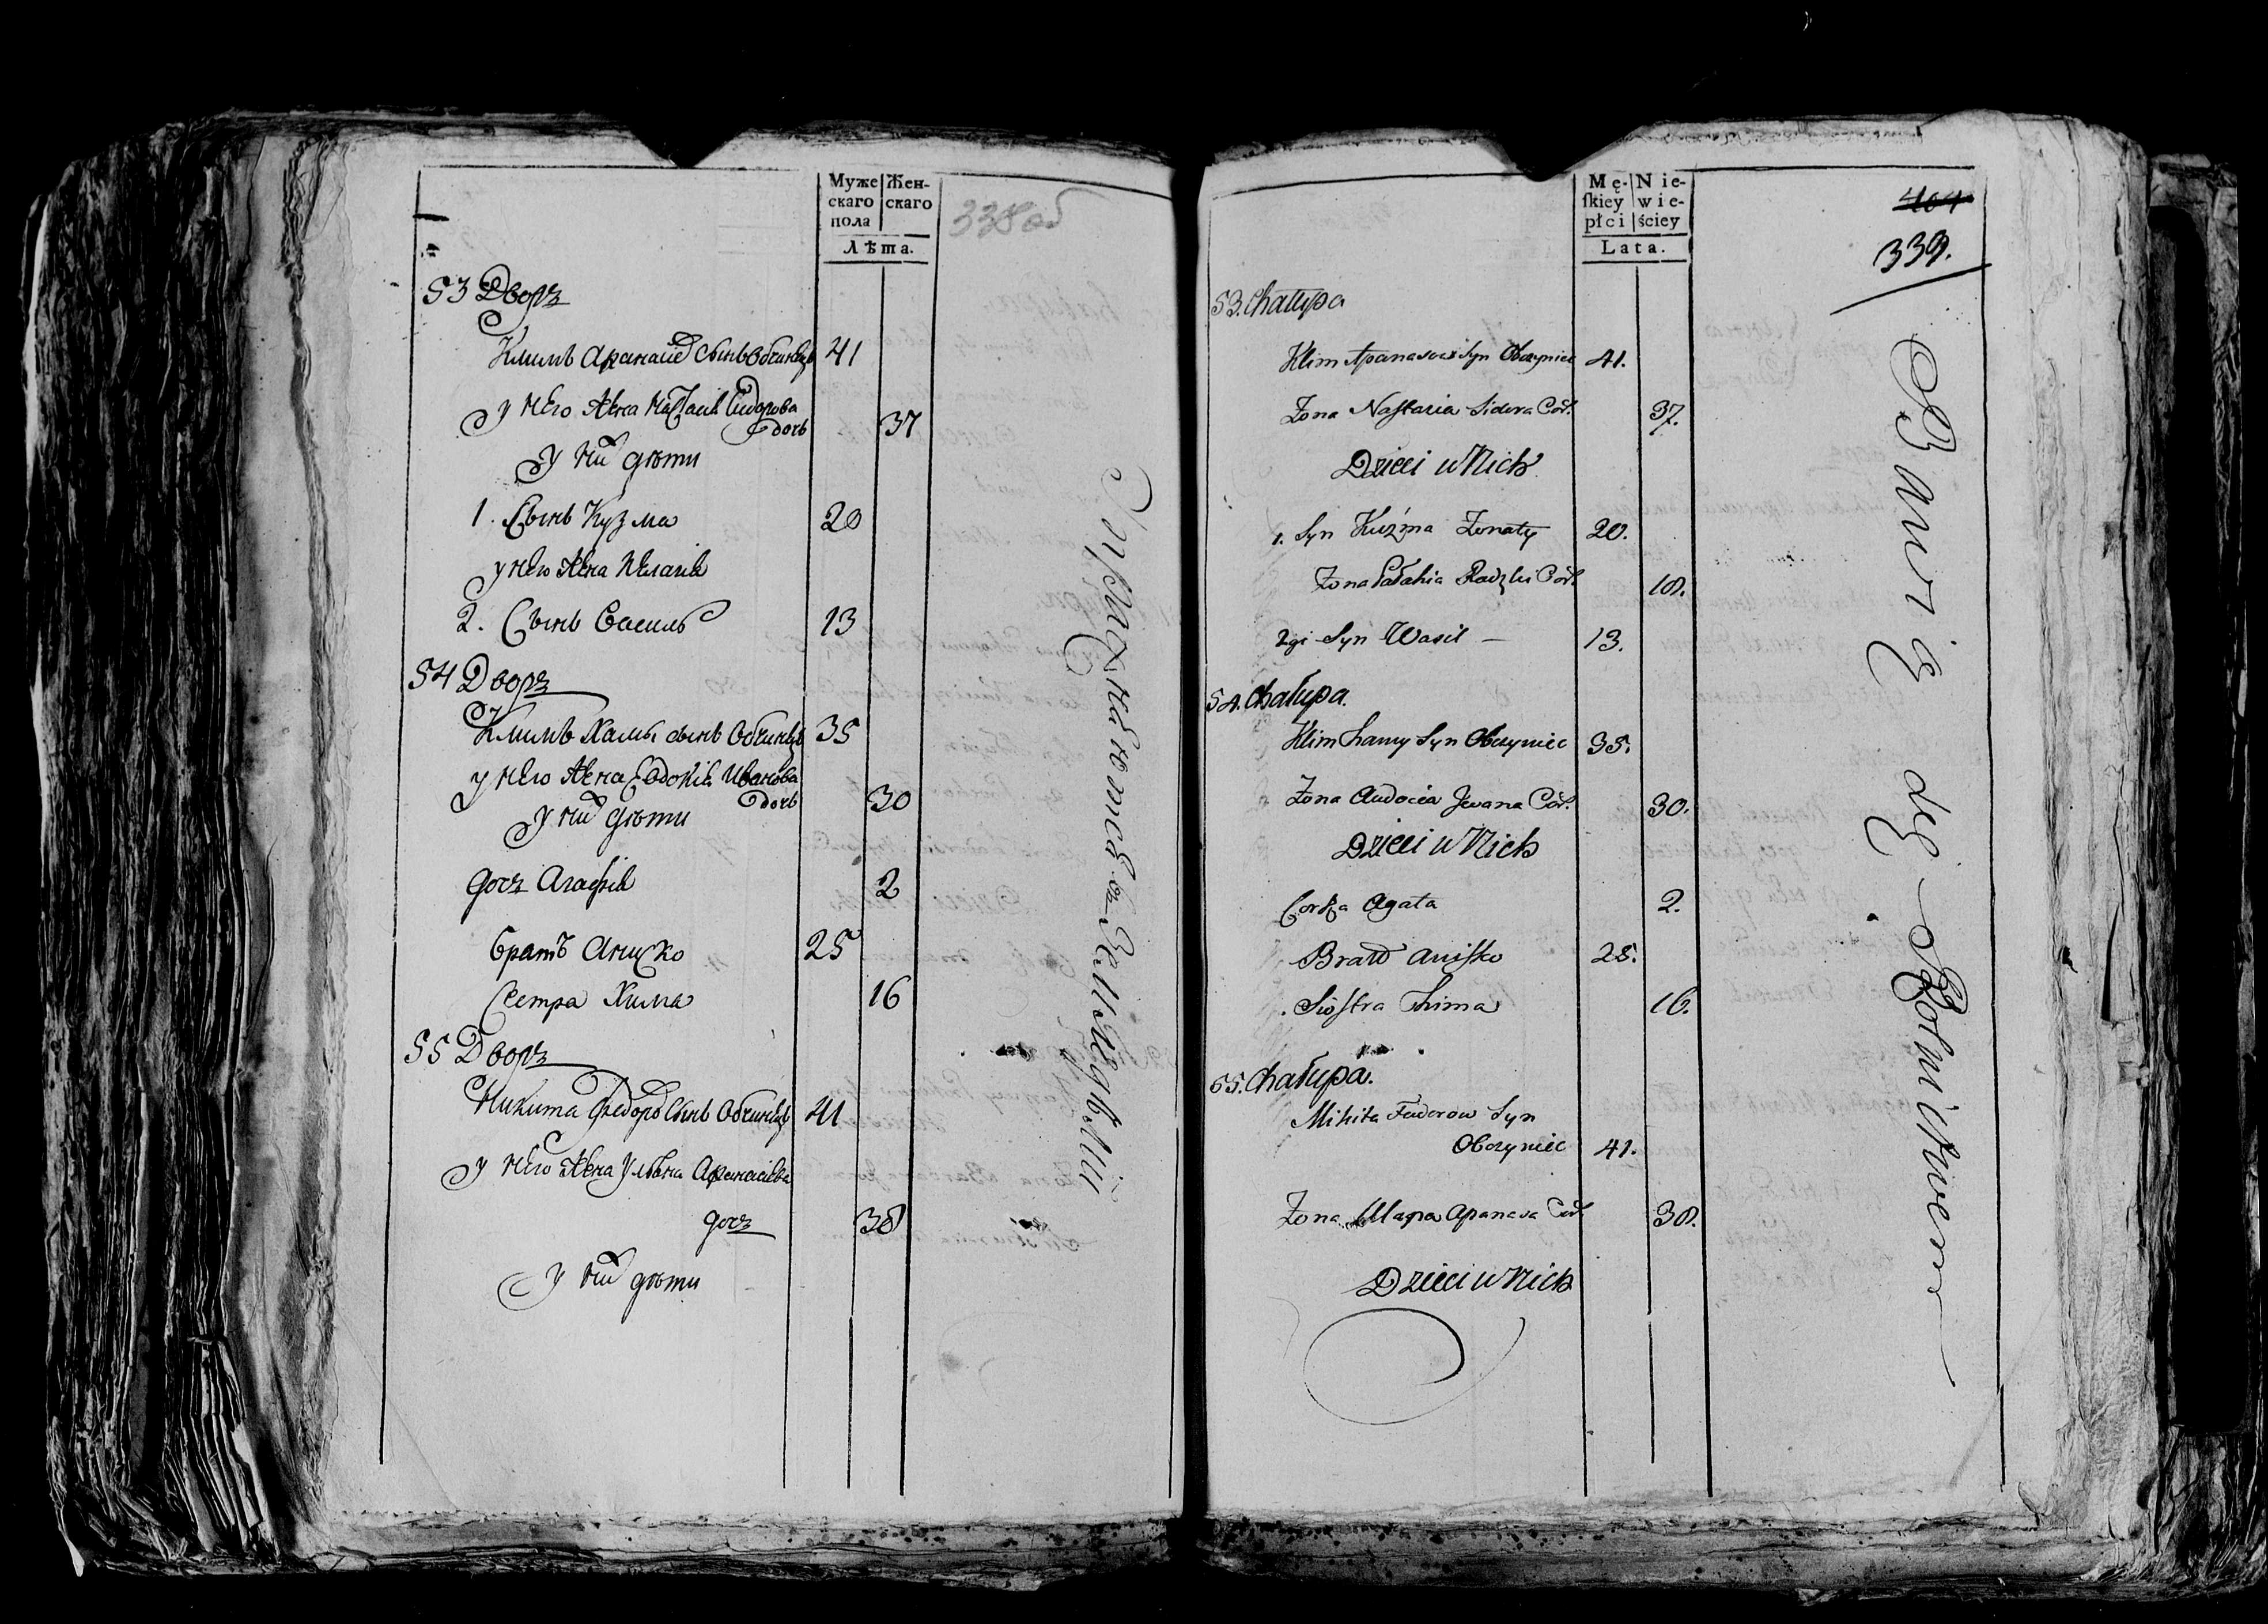 Муже
скаго
пола
Жен-
скаго
Лѣта.
338 об
53 Дворъ
Климъ Афанасіе сынъ Обчинецъ 41
у него жена Настасія Сидорова
дочь 37
у них дѣти
1. Сынъ Кузма 20
у него жена Пелагія
2. Сынъ Василь 13
54 Дворъ
Климъ Хамы сынъ Обчинецъ 35
у него жена Евдокія Иванова
дочь 30
у них дѣти
дочь Агафія 2
братъ Аниско 25
Сестра Хима 16
55 Дворъ
Никита Федоръ сынъ Обчинецъ 41
у него жена Ульяна Афанасіева
дочь 38
у них дѣти
Упражняются въ Земледѣліи
Mę-
ſkiey
płci
Nie-
wie-
ściey
Lata.
404
339.
53. Chałupa
Klim Apanasow Syn Obczyniec 41.
Żona Naſtazia Sidora Cór. 37.
Dzieci u Nich
1. Syn Kuźma Żonaty 20.
Żona Pałahia Radzki Cór. 18.
2gi Syn Wasil – 13.
54. Chałupa.
Klim Chamy Syn Obczyniec 35.
Żona Audocia Jwana Cór. 30.
Dzieci u Nich
Corka Agata 2.
Bratt Aniſko 25.
Sioſtra Chima 16.
55. Chałupa.
Mikita Fudorow Syn
Obczyniec 41.
Żona Apanasa Cór. 38.
Dzieci u Nich
Bawią się Rolnictwem